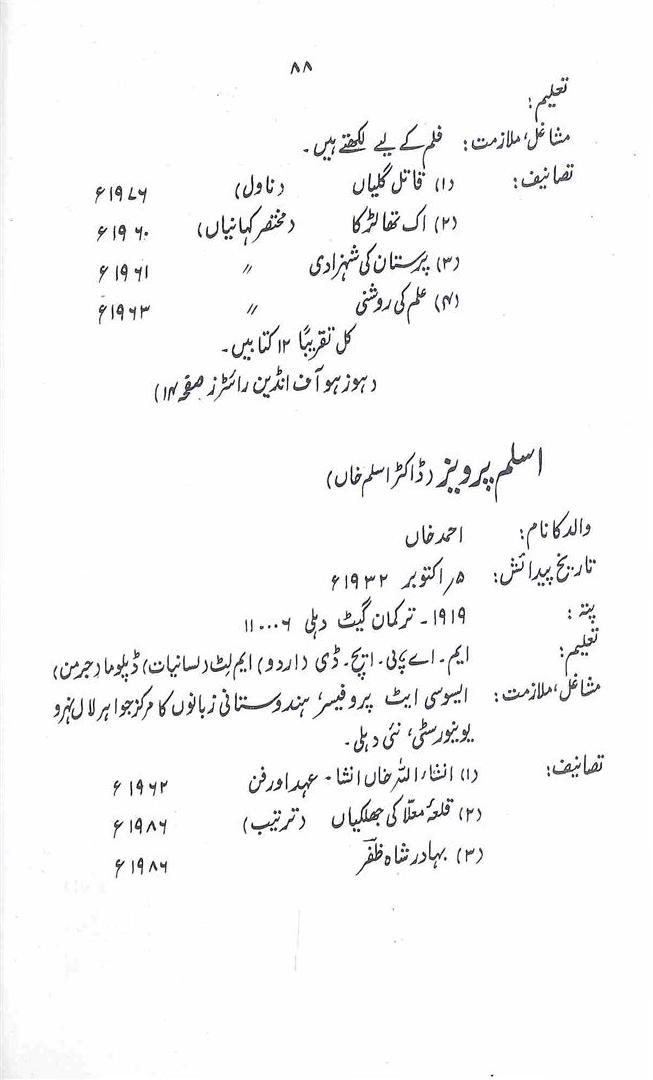 ۸۸
تعلیم:
مشاغل، ملازمت: فلم کے لیے لکھتے ہیں۔
تصانیف: (۱) قاتل گلیاں (ناول) ۱۹۷۶ء
(۲) اک تھا لڑکا (مختصر کہانیاں) ۱۹۶۰ء
(۳) پرستان کی شہزادی 〃 ۱۹۶۱ء
(۴) علم کی روشنی 〃 ۱۹۶۳ء
کل تقریباً ۱۲ کتابیں۔
(ہوز ہو آف انڈین رائٹرز صفحہ ۱۴)
اسلم پرویز (ڈاکٹر اسلم خاں)
والد کا نام: احمد خاں
تاریخ پیدائش: ۵ر اکتوبر ۱۹۳۲ء
پتہ: ۱۹۱۹۔ ترکمان گیٹ دہلی ۱۱۰۰۰۶
تعلیم: ایم۔ اے پی۔ ایچ۔ ڈی (اردو) ایم لٹ (لسانیات) ڈپلوما (جرمن)
مشاغل، ملازمت: ایسوسی ایٹ پروفیسر، ہندوستانی زبانوں کا مرکز جواہر لال نہرو
یونیورسٹی، نئی دہلی۔
تصانیف: (۱) انشاء اللہ خاں انشا۔ عہد اور فن ۱۹۶۲ء
(۲) قلعۂ معلا کی جھلکیاں (ترتیب) ۱۹۸۶ء
(۳) بہادر شاہ ظفر ۱۹۸۶ء